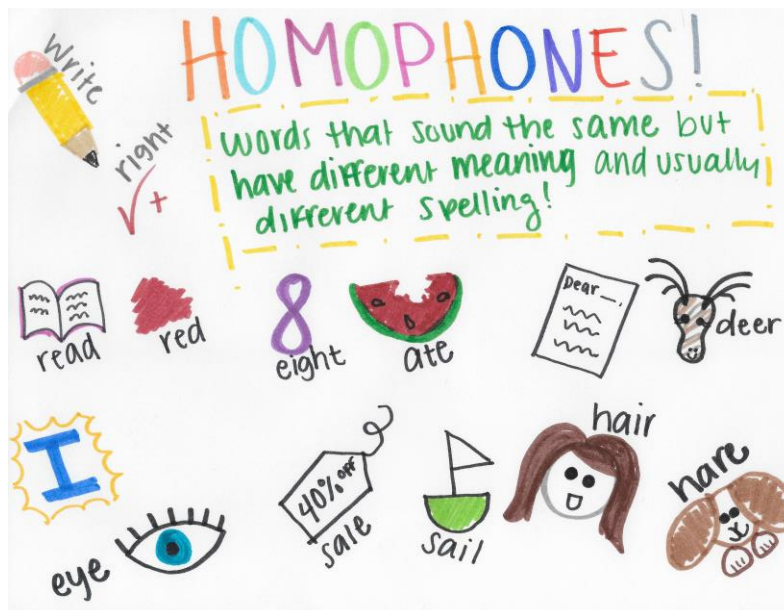 HOMOPHONES!
write
right
+
words that sound the same but
have different meaning and usually
different spelling!
read
red
8
eight
ate
Dear __,
deer
I
eye
40% OFF
sale
sail
hair
hare